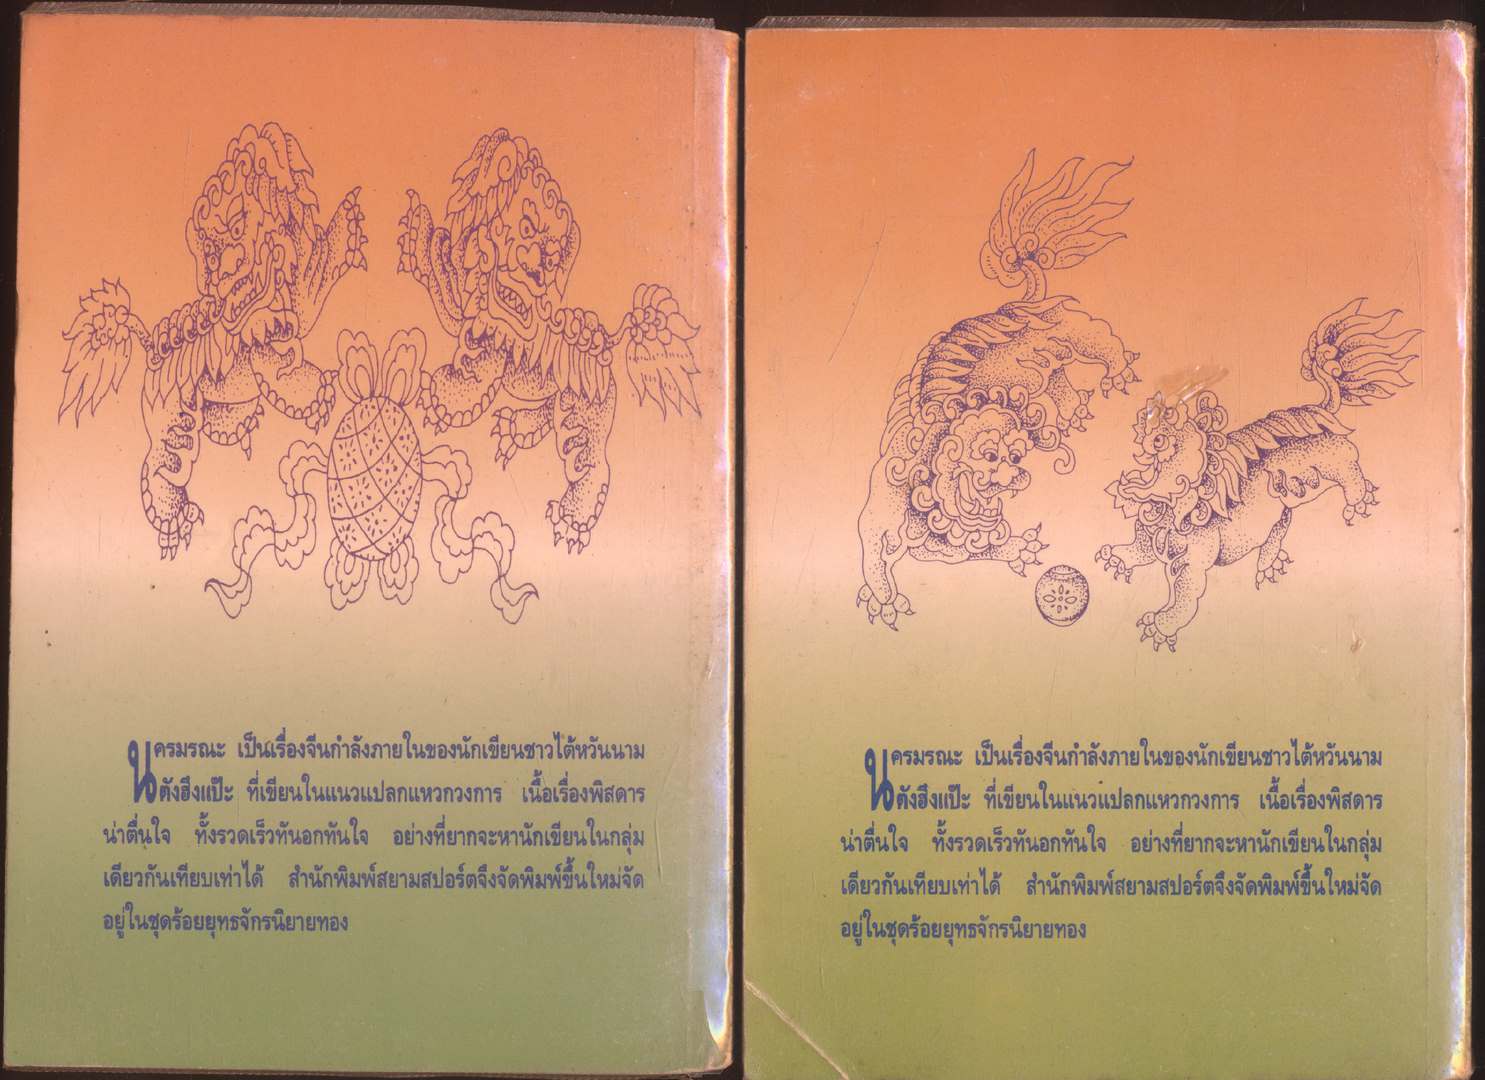 นครมรณะ เป็นเรื่องจีนกำลังภายในของนักเขียนชาวไต้หวันนาม
ตังฮึงแป๊ะ ที่เขียนในแนวแปลกแหวกวงการ เนื้อเรื่องพิสดาร
น่าตื่นใจ ทั้งรวดเร็วทันอกทันใจ อย่างที่ยากจะหานักเขียนในกลุ่ม
เดียวกันเทียบเท่าได้ สำนักพิมพ์สยามสปอร์ตจึงจัดพิมพ์ขึ้นใหม่จัด
อยู่ในชุดร้อยยุทธจักรนิยายทอง
นครมรณะ เป็นเรื่องจีนกำลังภายในของนักเขียนชาวไต้หวันนาม
ตังฮึงแป๊ะ ที่เขียนในแนวแปลกแหวกวงการ เนื้อเรื่องพิสดาร
น่าตื่นใจ ทั้งรวดเร็วทันอกทันใจ อย่างที่ยากจะหานักเขียนในกลุ่ม
เดียวกันเทียบเท่าได้ สำนักพิมพ์สยามสปอร์ตจึงจัดพิมพ์ขึ้นใหม่จัด
อยู่ในชุดร้อยยุทธจักรนิยายทอง